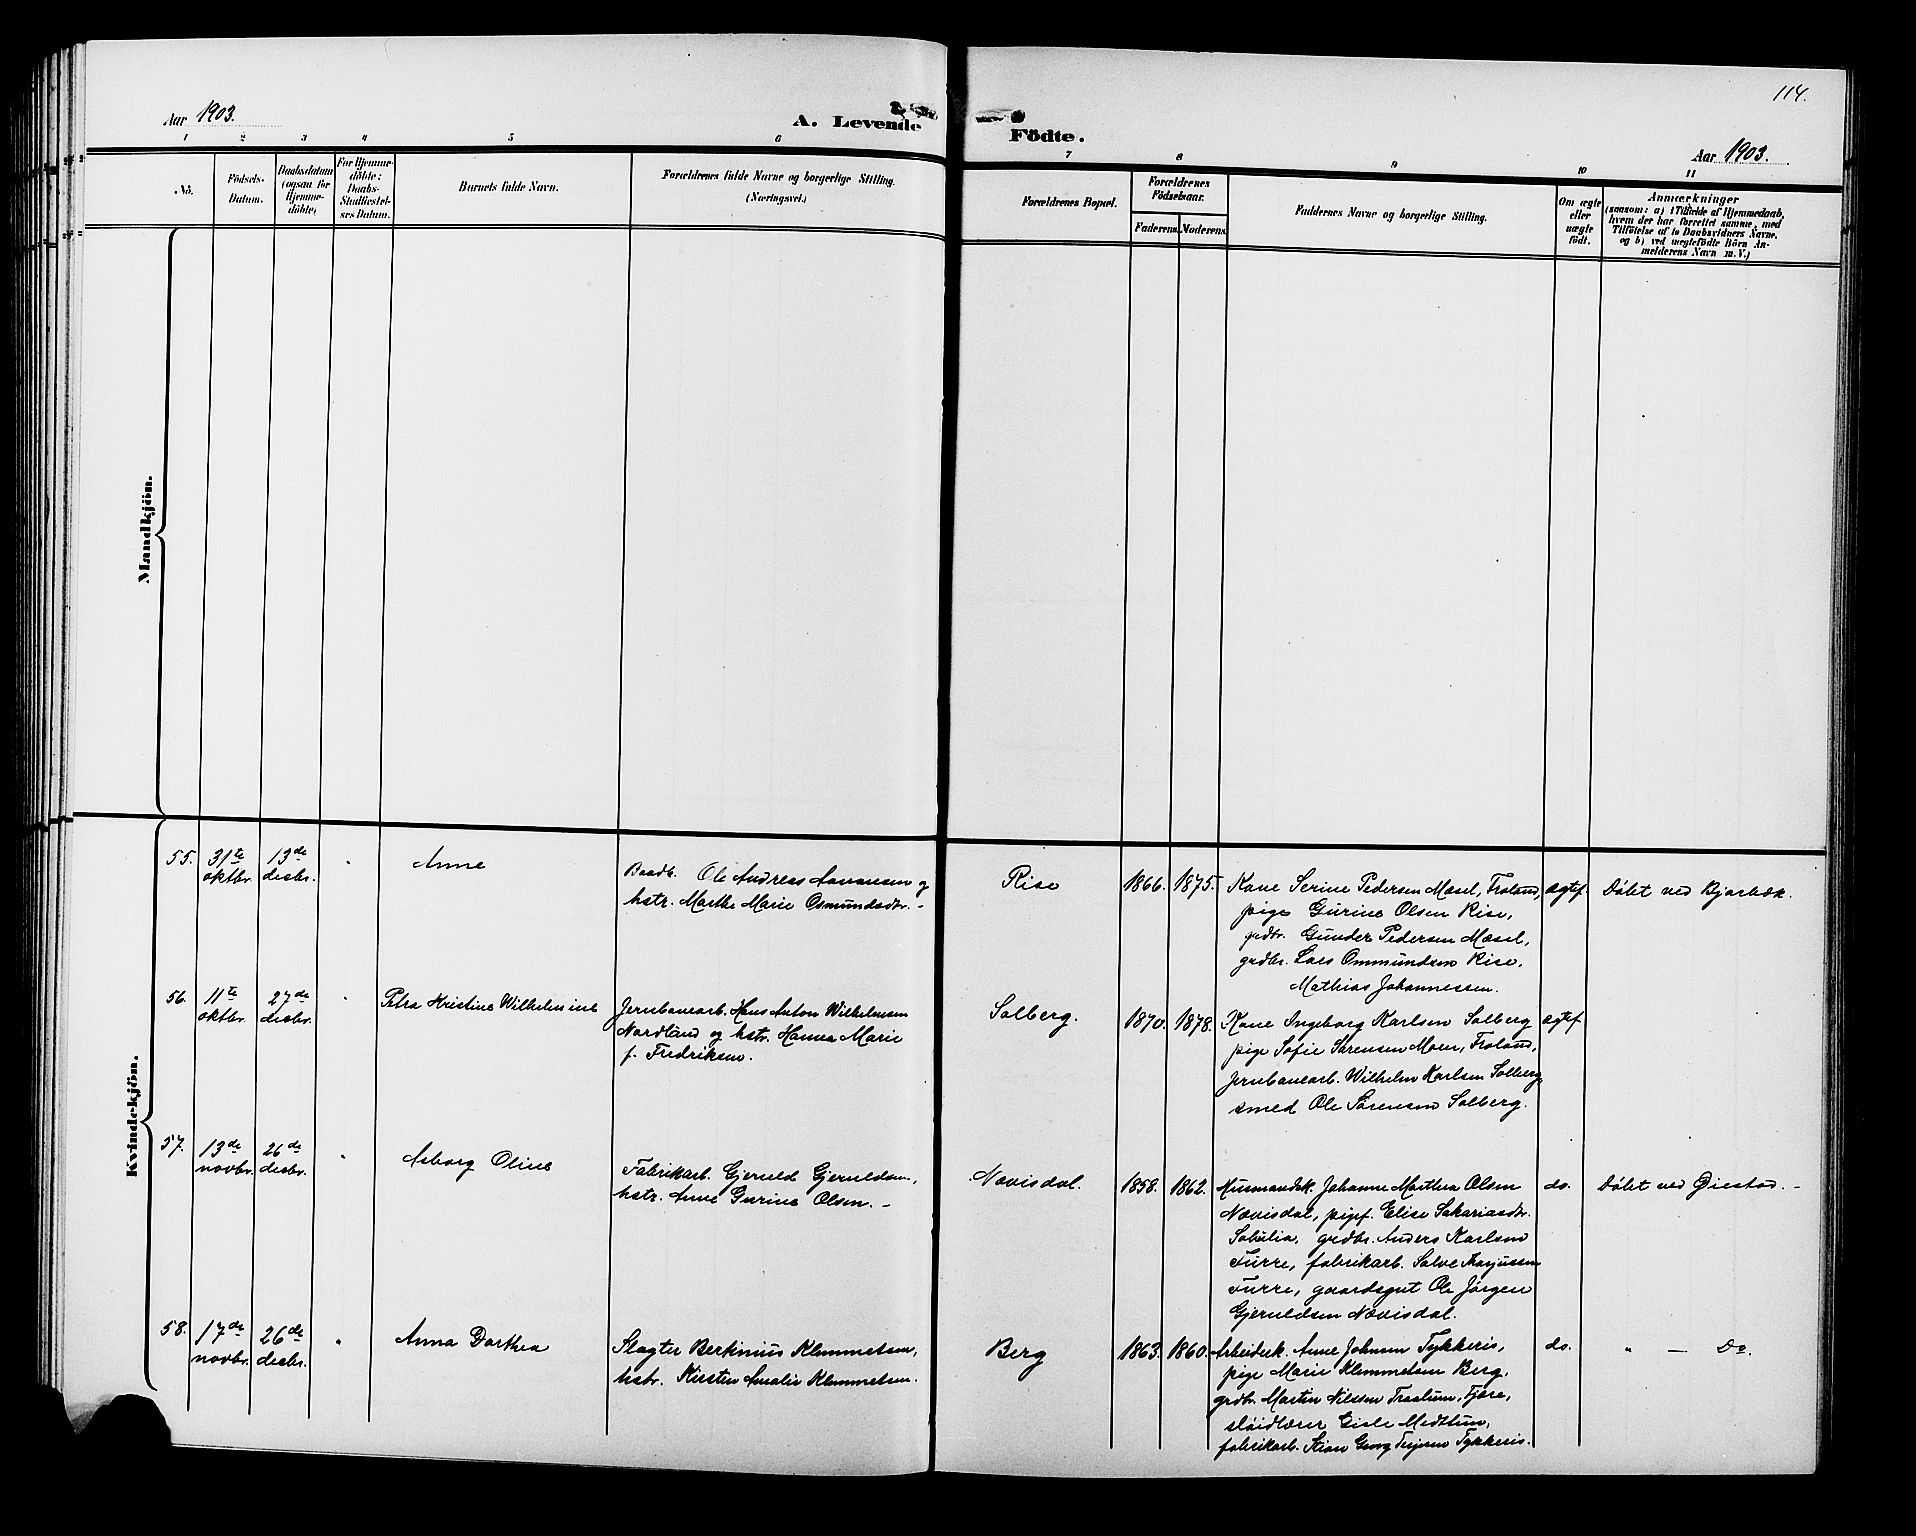 114.
Aar 1903.
A. Levende Födte.
Aar 1903.
1 2 3 4 5 6 7 8 9 10 11
No.
Födsels-
Datum.
Daabsdatum
(ogsaa for
Hjemme-
döbte)
For Hjemme-
döbte:
Daabs-
Stadfæstel-
ses Datum.
Barnets fulde Navn.
Forældrenes fulde Navne og borgerlige Stilling.
(Næringsvei.)
Forældrenes Bopæl.
Forældrenes
Födselsaar.
Faderens. Moderens.
Faddernes Navne og borgerlige Stilling.
Om ægte
eller
uægte
födt.
Anmærkninger
(saasom: a) i Tilfælde af Hjemmedaab,
hvem der har forrettet samme, med
Tilföielse af to Daabsvidners Navne.
og b) ved uegtefödte Börn An-
melderens Navn m. V.)
Mandkjön.
Kvindekjön.
55. 31te oktbr. 13de desbr. "
Anne
Baadb. Ole Andreas Aanonsen og
hstr. Marthe Marie Osmundsdtr. -
Rise
1866. 1875.
Kone Serine Pedersen Mæsel, Froland,
pige Gurine Olsen Rise,
grdbr. Gunder Pedersen Mæsel,
grdbr. Lars Ommundsen Rise,
Mathias Johannessen.
ægtef.
Döbt ved Bjorbæk.
56. 11te oktbr. 27de desbr. "
Petra Kristine Wilhelmine
Jernbanearb. Hans Anton Wilhelmsen
Nordland og hstr. Hanna Marie
f. Fredriksen.
Solberg.
1870. 1878.
Kone Ingeborg Karlsen Solberg
pige Sofie Sørensen Moen, Froland,
jernbanearb. Wilhelm Karlsen Solberg
smed Ole Sørensen Solberg.
ægtef
57. 13de novbr. 26de desbr. "
Asborg Oline
Fabrikarb. Gjeruld Gjeruldsen,
hstr. Anne Gurine Olsen. -
Nævisdal.
1858. 1862.
Husmandsk. Johanne Marthea Olsen
Nævisdal, pigef. Elise Sakariasdtr.
grdbr. Anders Karlsen
Furre, fabrikarb. Salve
Furre, gaardsgut Ole Jørgen
Gjeruldsen Nævisdal.
do.
Döbt ved Øiestad. -
58. 17de novbr. 26de desbr. "
Anna Dorthea
Slagter Bertinius Klemmetsen,
hstr. Kirsten Amalie Klemmetsen.
Berg
1863. 1860.
Arbeidsk. Anne Johnsen Tykkeris,
pige Marie Klemmetsen Berg,
grdbr. Martin Nilssen Traalum, Fjære,
sløidlærer Gisle Medtbum,
fabrikarb. Stian Georg Tykkeris.
do.
" - Do.